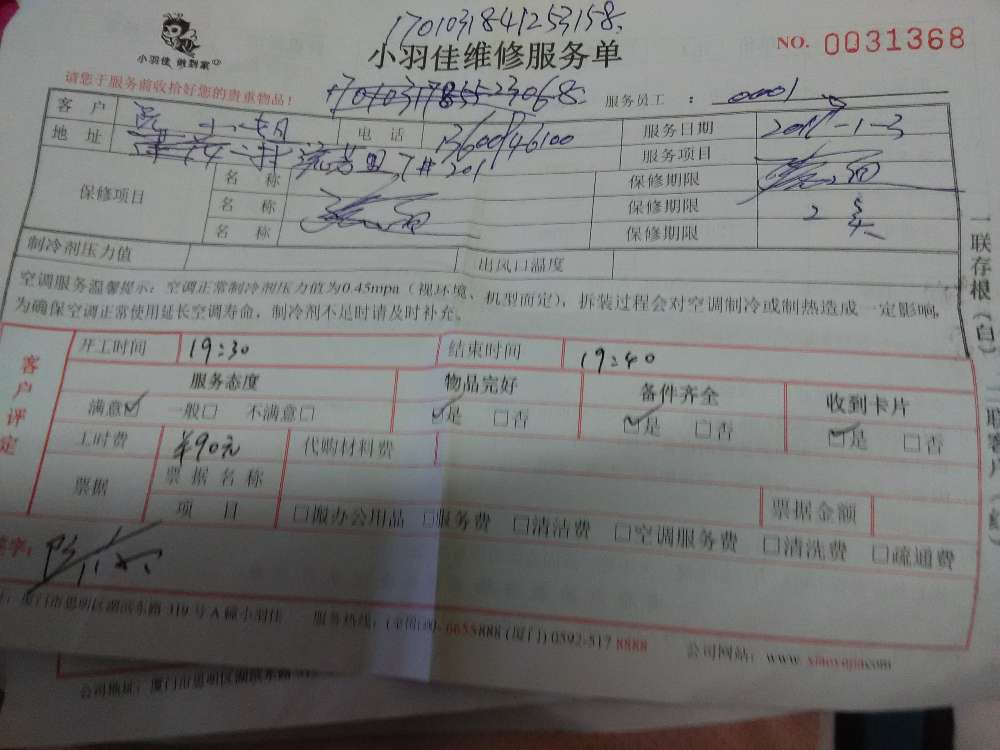 1701031841253158.
小羽佳 做到家
小羽佳维修服务单
NO. 0031368
请您于服务前收拾好您的贵重物品！
服务员工 ： 0001
客户
电话
服务日期
地址
7# 201
服务项目
保修项目 名称 保修期限
名称 保修期限
2
名称 保修期限
制冷剂压力值 出风口温度
空调服务温馨提示：空调正常制冷剂压力值为0.45mpa（视环境、机型而定），拆装过程会对空调制冷或制热造成一定影响，
为确保空调正常使用延长空调寿命，制冷剂不足时请及时补充。
一联存根（白）
二联客户（红）
客户评定
开工时间 19:30 结束时间 19:40
服务态度 物品完好 备件齐全 收到卡片
满意☑ 一般□ 不满意□ ☑是 □否 ☑是 □否 ☑是 □否
工时费 ¥90元 代购材料费
票据 票据名称 票据金额
项目 □搬办公用品 □服务费 □清洁费 □空调服务费 □清洗费 □疏通费
签字：
厦门市思明区湖滨东路319号A幢小羽佳 服务热线：(全国)6655888 (厦门) 0592-517 8888 公司网站：www.xiaoyujia.com
公司地址：厦门市思明区湖滨东路